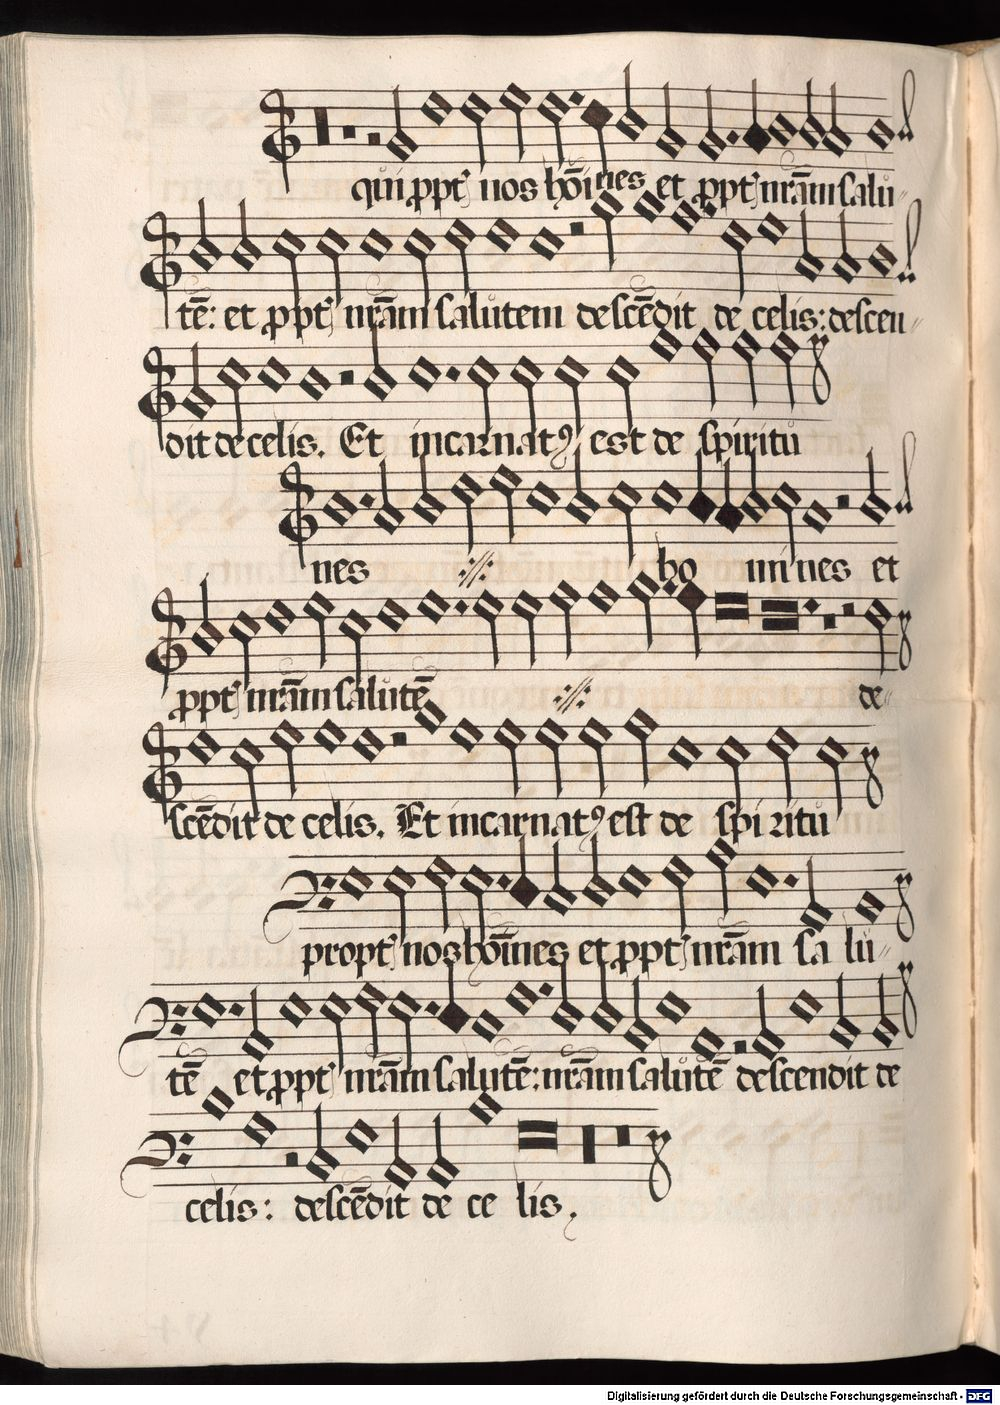 qui ppt nos hōīnes et ppt nrām salu⸗
tē: et ppt nrām salutem descēdit de celis: descen⸗
dit de celis. Et incarnatꝰ est de spiritu
nes ho mines et
ppt nrām salutē de⸗
scēdit de celis. Et incarnatꝰ est de spiritu
propt nos hōīnes et ppt nrām sa lu⸗
tē et ppt nrām salutē: nrām salutē descendit de
celis: descēdit de ce lis.
Digitalisierung gefördert durch die Deutsche Forschungsgemeinschaft - DFG